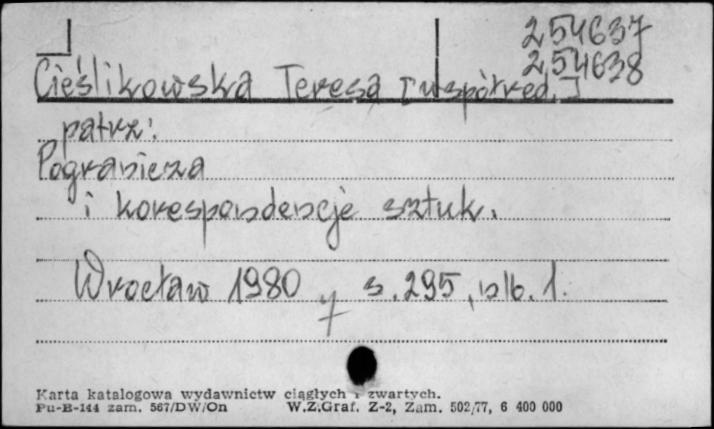 254637
254638
Cieślikowska Teresa [współred.]
patrz:
Pogranicza
i korespondencje sztuk.
Wrocław 1980 s. 295, nlb. 1.
Karta katalogowa wydawnictw ciągłych i zwartych.
Pu-B-144 zam. 567/DW/On W.Z.Graf. Z-2, Zam. 502/77, 6 400 000